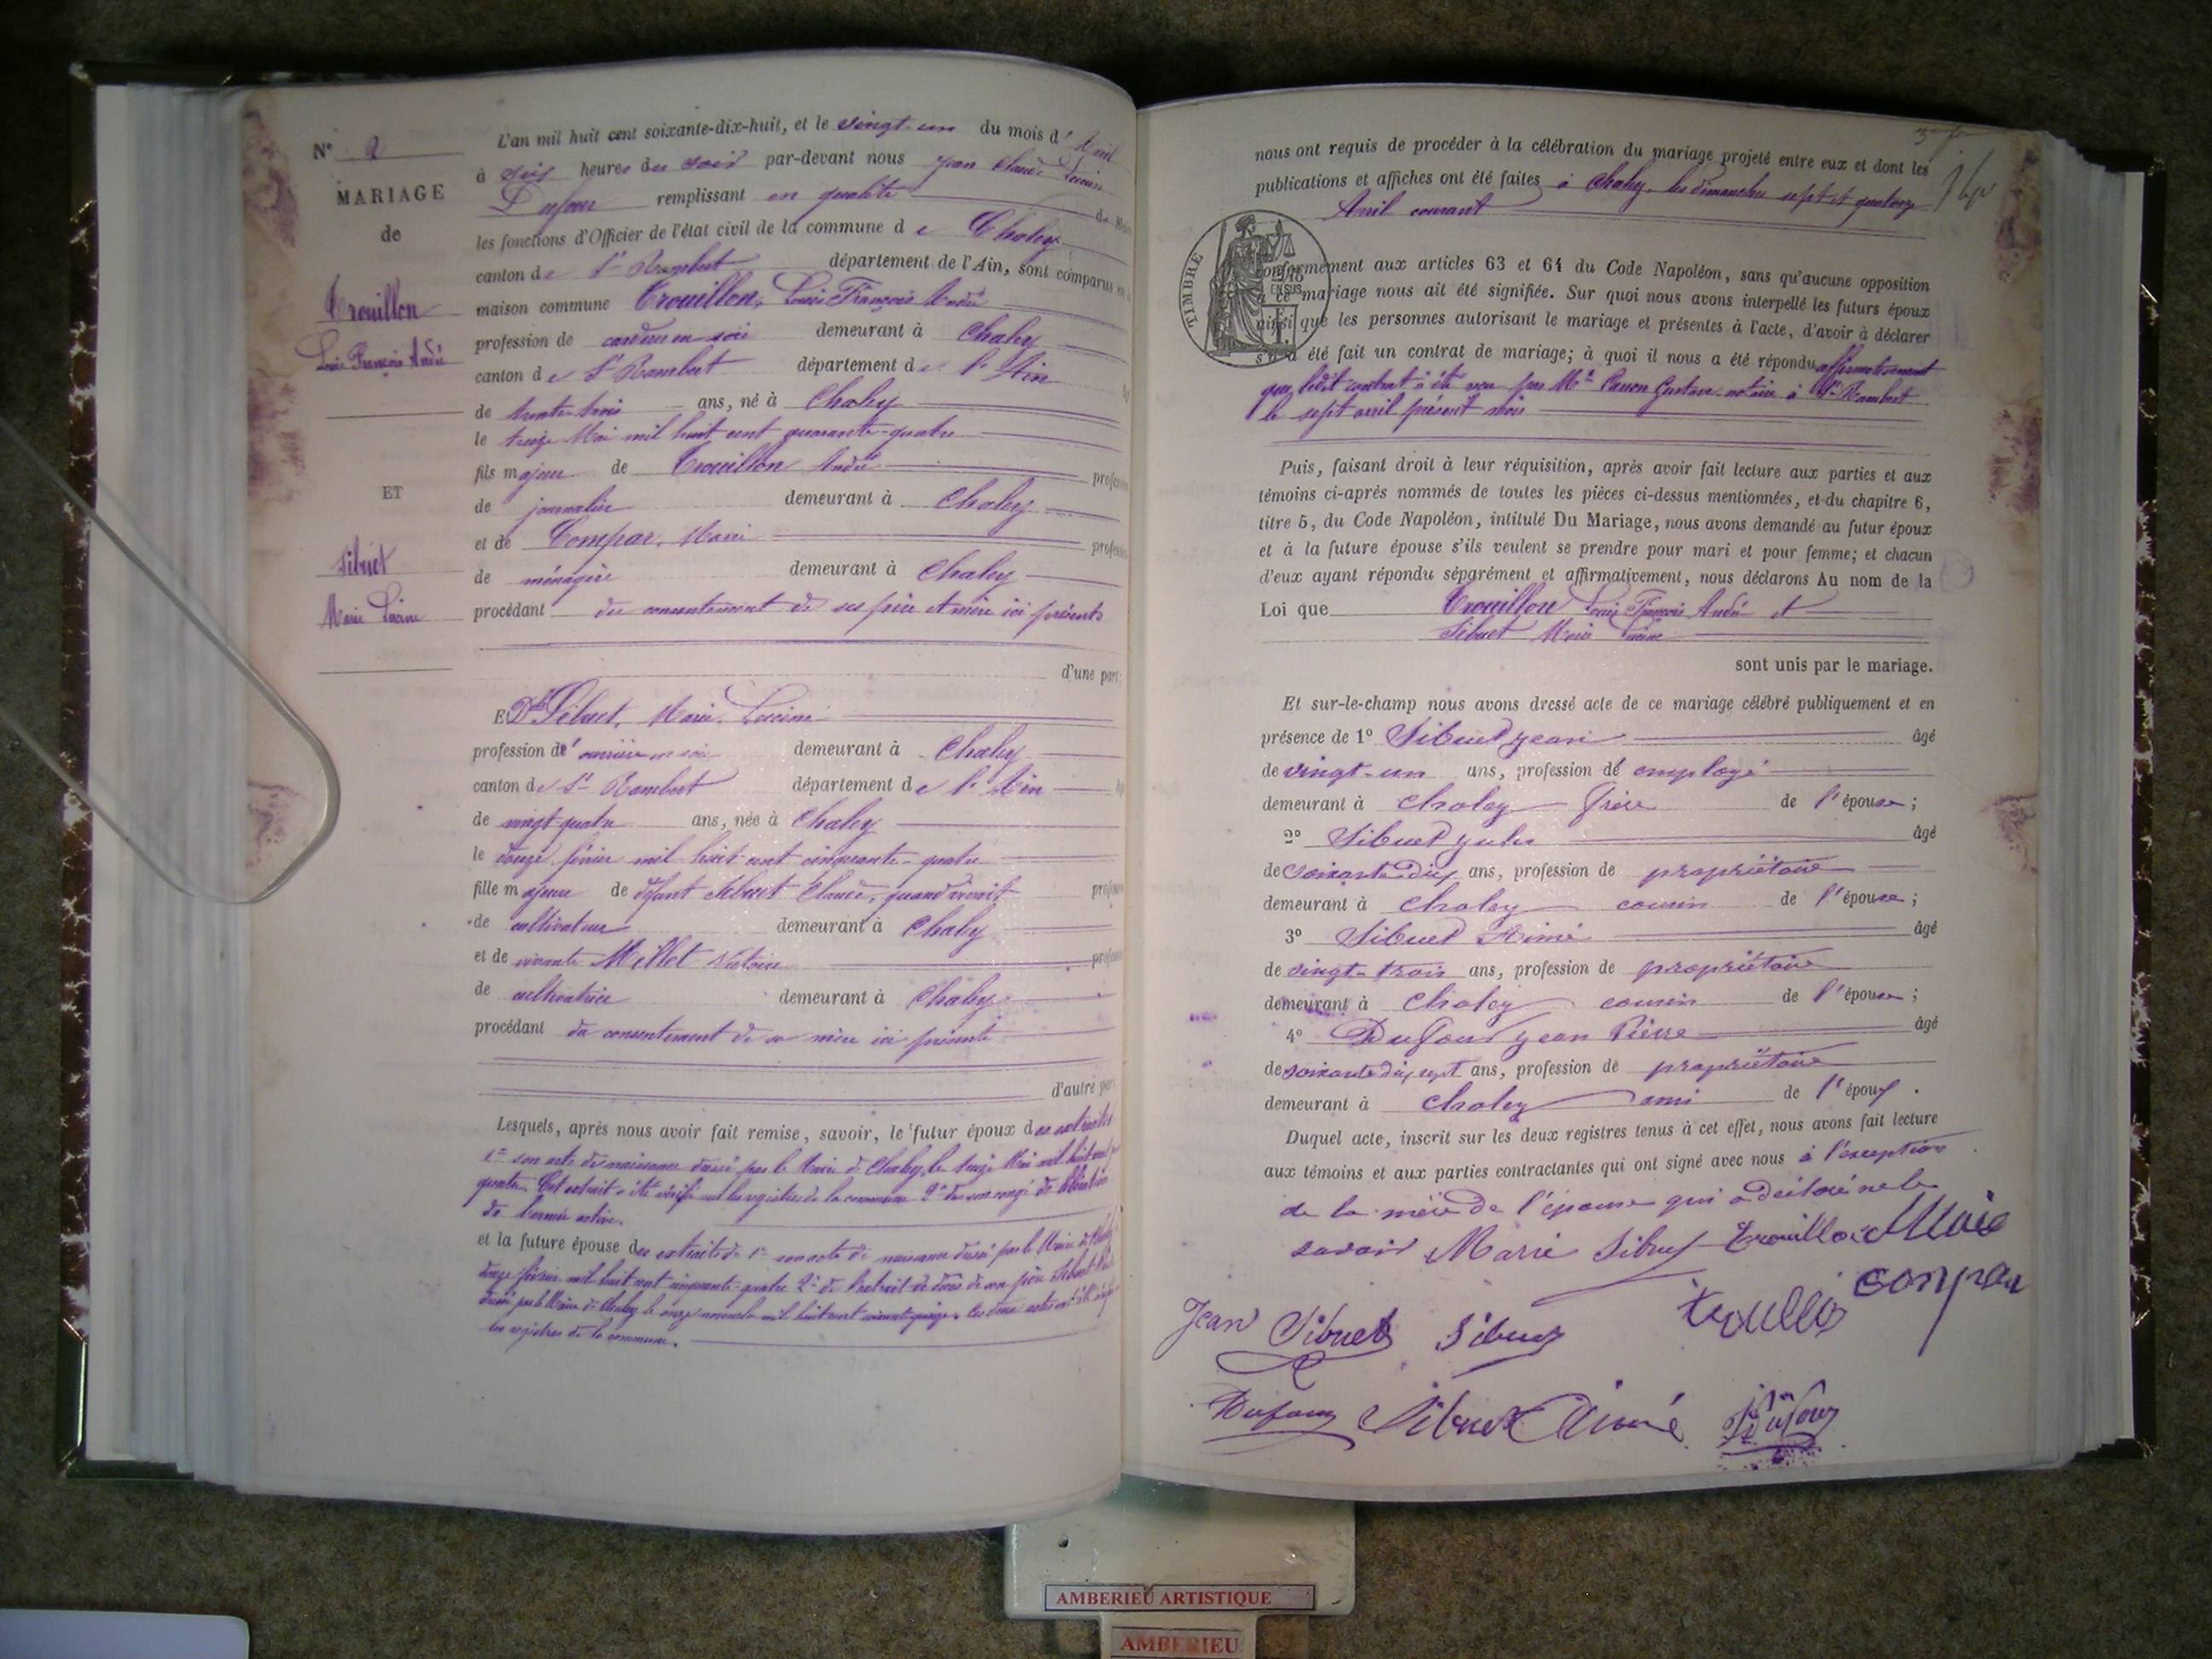 N° 2
MARIAGE
de
Trouillon
Louis François André
ET
Sibuet
Marie Lucine
L'an mil huit cent soixante-dix-huit, et le vingt-un du mois d'Avril
à six heures du soir par-devant nous Jean Claude Lucien
Dufour remplissant en qualité de Maire
les fonctions d'Officier de l'état civil de la commune de Chaley
canton de St Rambert département de l'Ain, sont comparus en la
maison commune Trouillon, Louis François André
profession de cardeur en soie demeurant à Chaley
canton de St Rambert département de l'Ain
de trente-trois ans, né à Chaley
le treize Mai mil huit cent quarante-quatre
fils majeur de Trouillon André profession
de journalier demeurant à Chaley
et de Compar, Marie profession
de ménagère demeurant à Chaley
procédant du consentement de ses père et mère ici présents
d'une part;
Et Dlle Sibuet, Marie Lucine
profession d'ouvrière en soie demeurant à Chaley
canton de St Rambert département de l'Ain
de vingt-quatre ans, née à Chaley
le douze février mil huit cent cinquante-quatre
fille majeure de défunt Sibuet Claude, quand vivait profession
de cultivateur demeurant à Chaley
et de vivante Millet Victoire profession
de cultivatrice demeurant à Chaley
procédant du consentement de sa mère ici présente
d'autre part
Lesquels, après nous avoir fait remise, savoir, le futur époux des extraits
1° son acte de naissance dressé par le Maire de Chaley, le treize Mai mil huit cent
quatre. Cet extrait a été vérifié sur les registres de la commune 2° de son congé de libération
de l'armée active.
et la future épouse des extraits de 1° son acte de naissance dressé par le Maire de Chaley
douze février mil huit cent cinquante-quatre 2° de l'extrait de décès de son père Sibuet
dressé par le Maire de Chaley le onze novembre mil huit cent soixante-quinze. Ces deux actes ont été
les registres de la commune.
nous ont requis de procéder à la célébration du mariage projeté entre eux et dont les
publications et affiches ont été faites à Chaley, les dimanches sept et quatorze
Avril courant
TIMBRE
conformément aux articles 63 et 64 du Code Napoléon, sans qu'aucune opposition
à ce mariage nous ait été signifiée. Sur quoi nous avons interpellé les futurs époux
ainsi que les personnes autorisant le mariage et présentes à l'acte, d'avoir à déclarer
s'il a été fait un contrat de mariage; à quoi il nous a été répondu affirmativement
que ledit contrat a été reçu par Me Gustave notaire à St Rambert
le sept avril présent mois
Puis, faisant droit à leur réquisition, après avoir fait lecture aux parties et aux
témoins ci-après nommés de toutes les pièces ci-dessus mentionnées, et du chapitre 6,
titre 5, du Code Napoléon, intitulé Du Mariage, nous avons demandé au futur époux
et à la future épouse s'ils veulent se prendre pour mari et pour femme; et chacun
d'eux ayant répondu séparément et affirmativement, nous déclarons Au nom de la
Loi que Trouillon Louis François André et
Sibuet Marie Lucine
sont unis par le mariage.
Et sur-le-champ nous avons dressé acte de ce mariage célébré publiquement et en
présence de 1° Sibuet Jean âgé
de vingt-un ans, profession d'employé
demeurant à Chaley frère de l'épouse;
2° Sibuet Jules âgé
de soixante-dix ans, profession de propriétaire
demeurant à Chaley cousin de l'épouse;
3° Sibuet Aimé âgé
de vingt-trois ans, profession de propriétaire
demeurant à Chaley cousin de l'épouse;
4° Dufour Jean Pierre âgé
de soixante dix sept ans, profession de propriétaire
demeurant à Chaley ami de l'époux.
Duquel acte, inscrit sur les deux registres tenus à cet effet, nous avons fait lecture
aux témoins et aux parties contractantes qui ont signé avec nous à l'exception
de la mère de l'épouse qui a déclaré ne le
savoir Marie Sibuet Trouillon
compar
Jean Sibuet Sibuet
Dufour Sibuet Aimé Dufour
AMBERIEU ARTISTIQUE
AMBERIEU